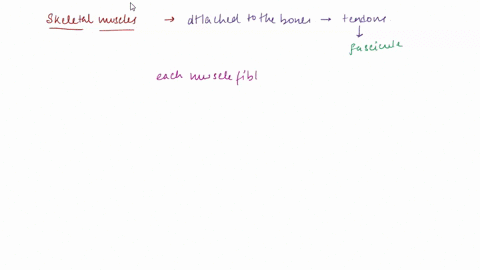 Skeletal muscles → attached to the bones → tendons
↓
fascicule
each muscle fibl